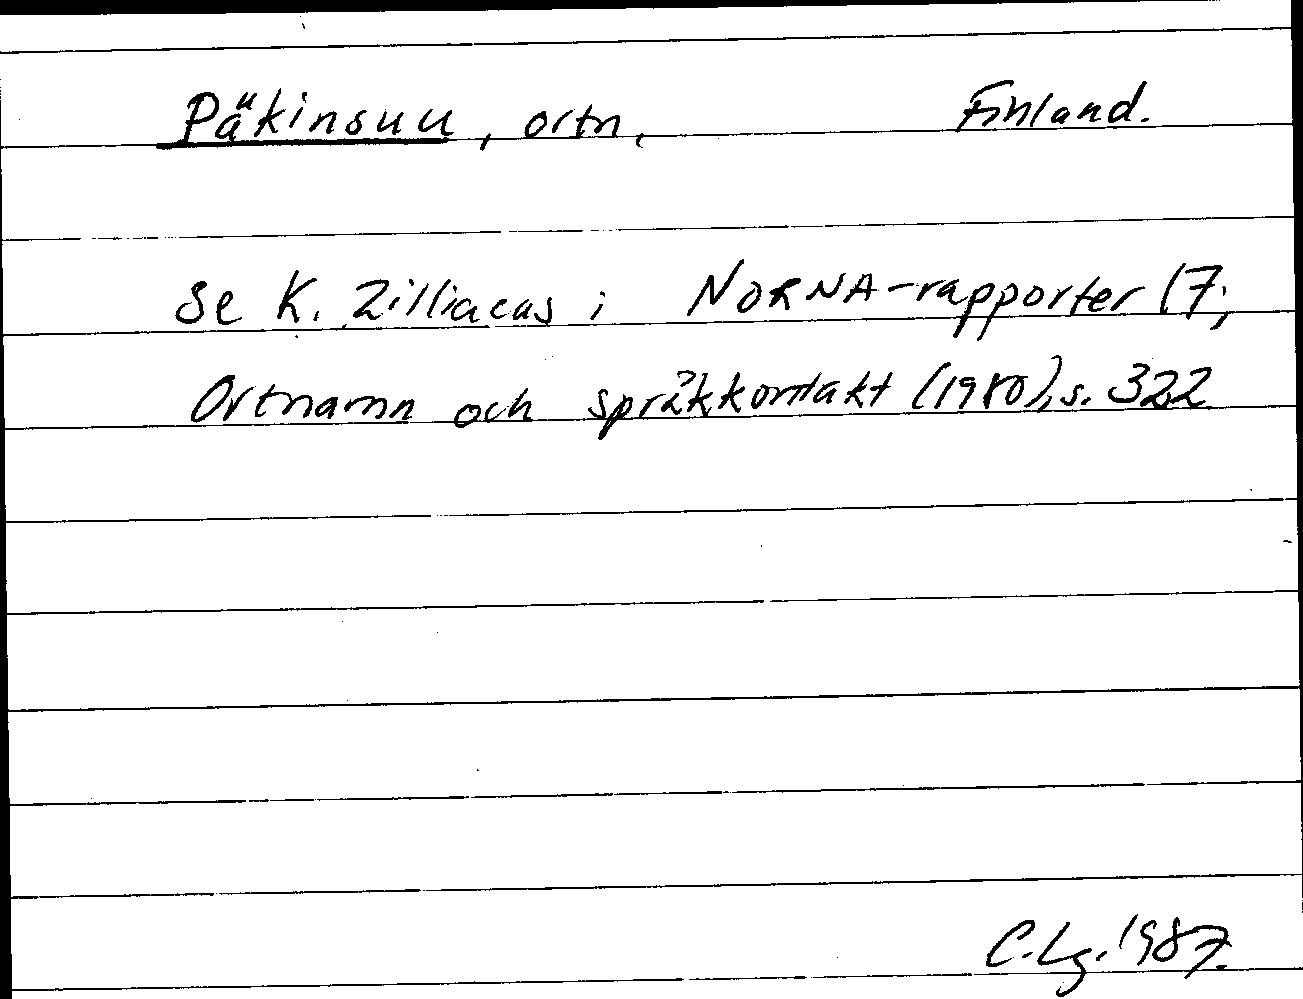 Päkinsuu, ortn. Finland.
Se K. Zilliacus i NORNA-rapporter 17;
Ortnamn och språkkontakt (1980), s. 322
C.Lg. 1987.